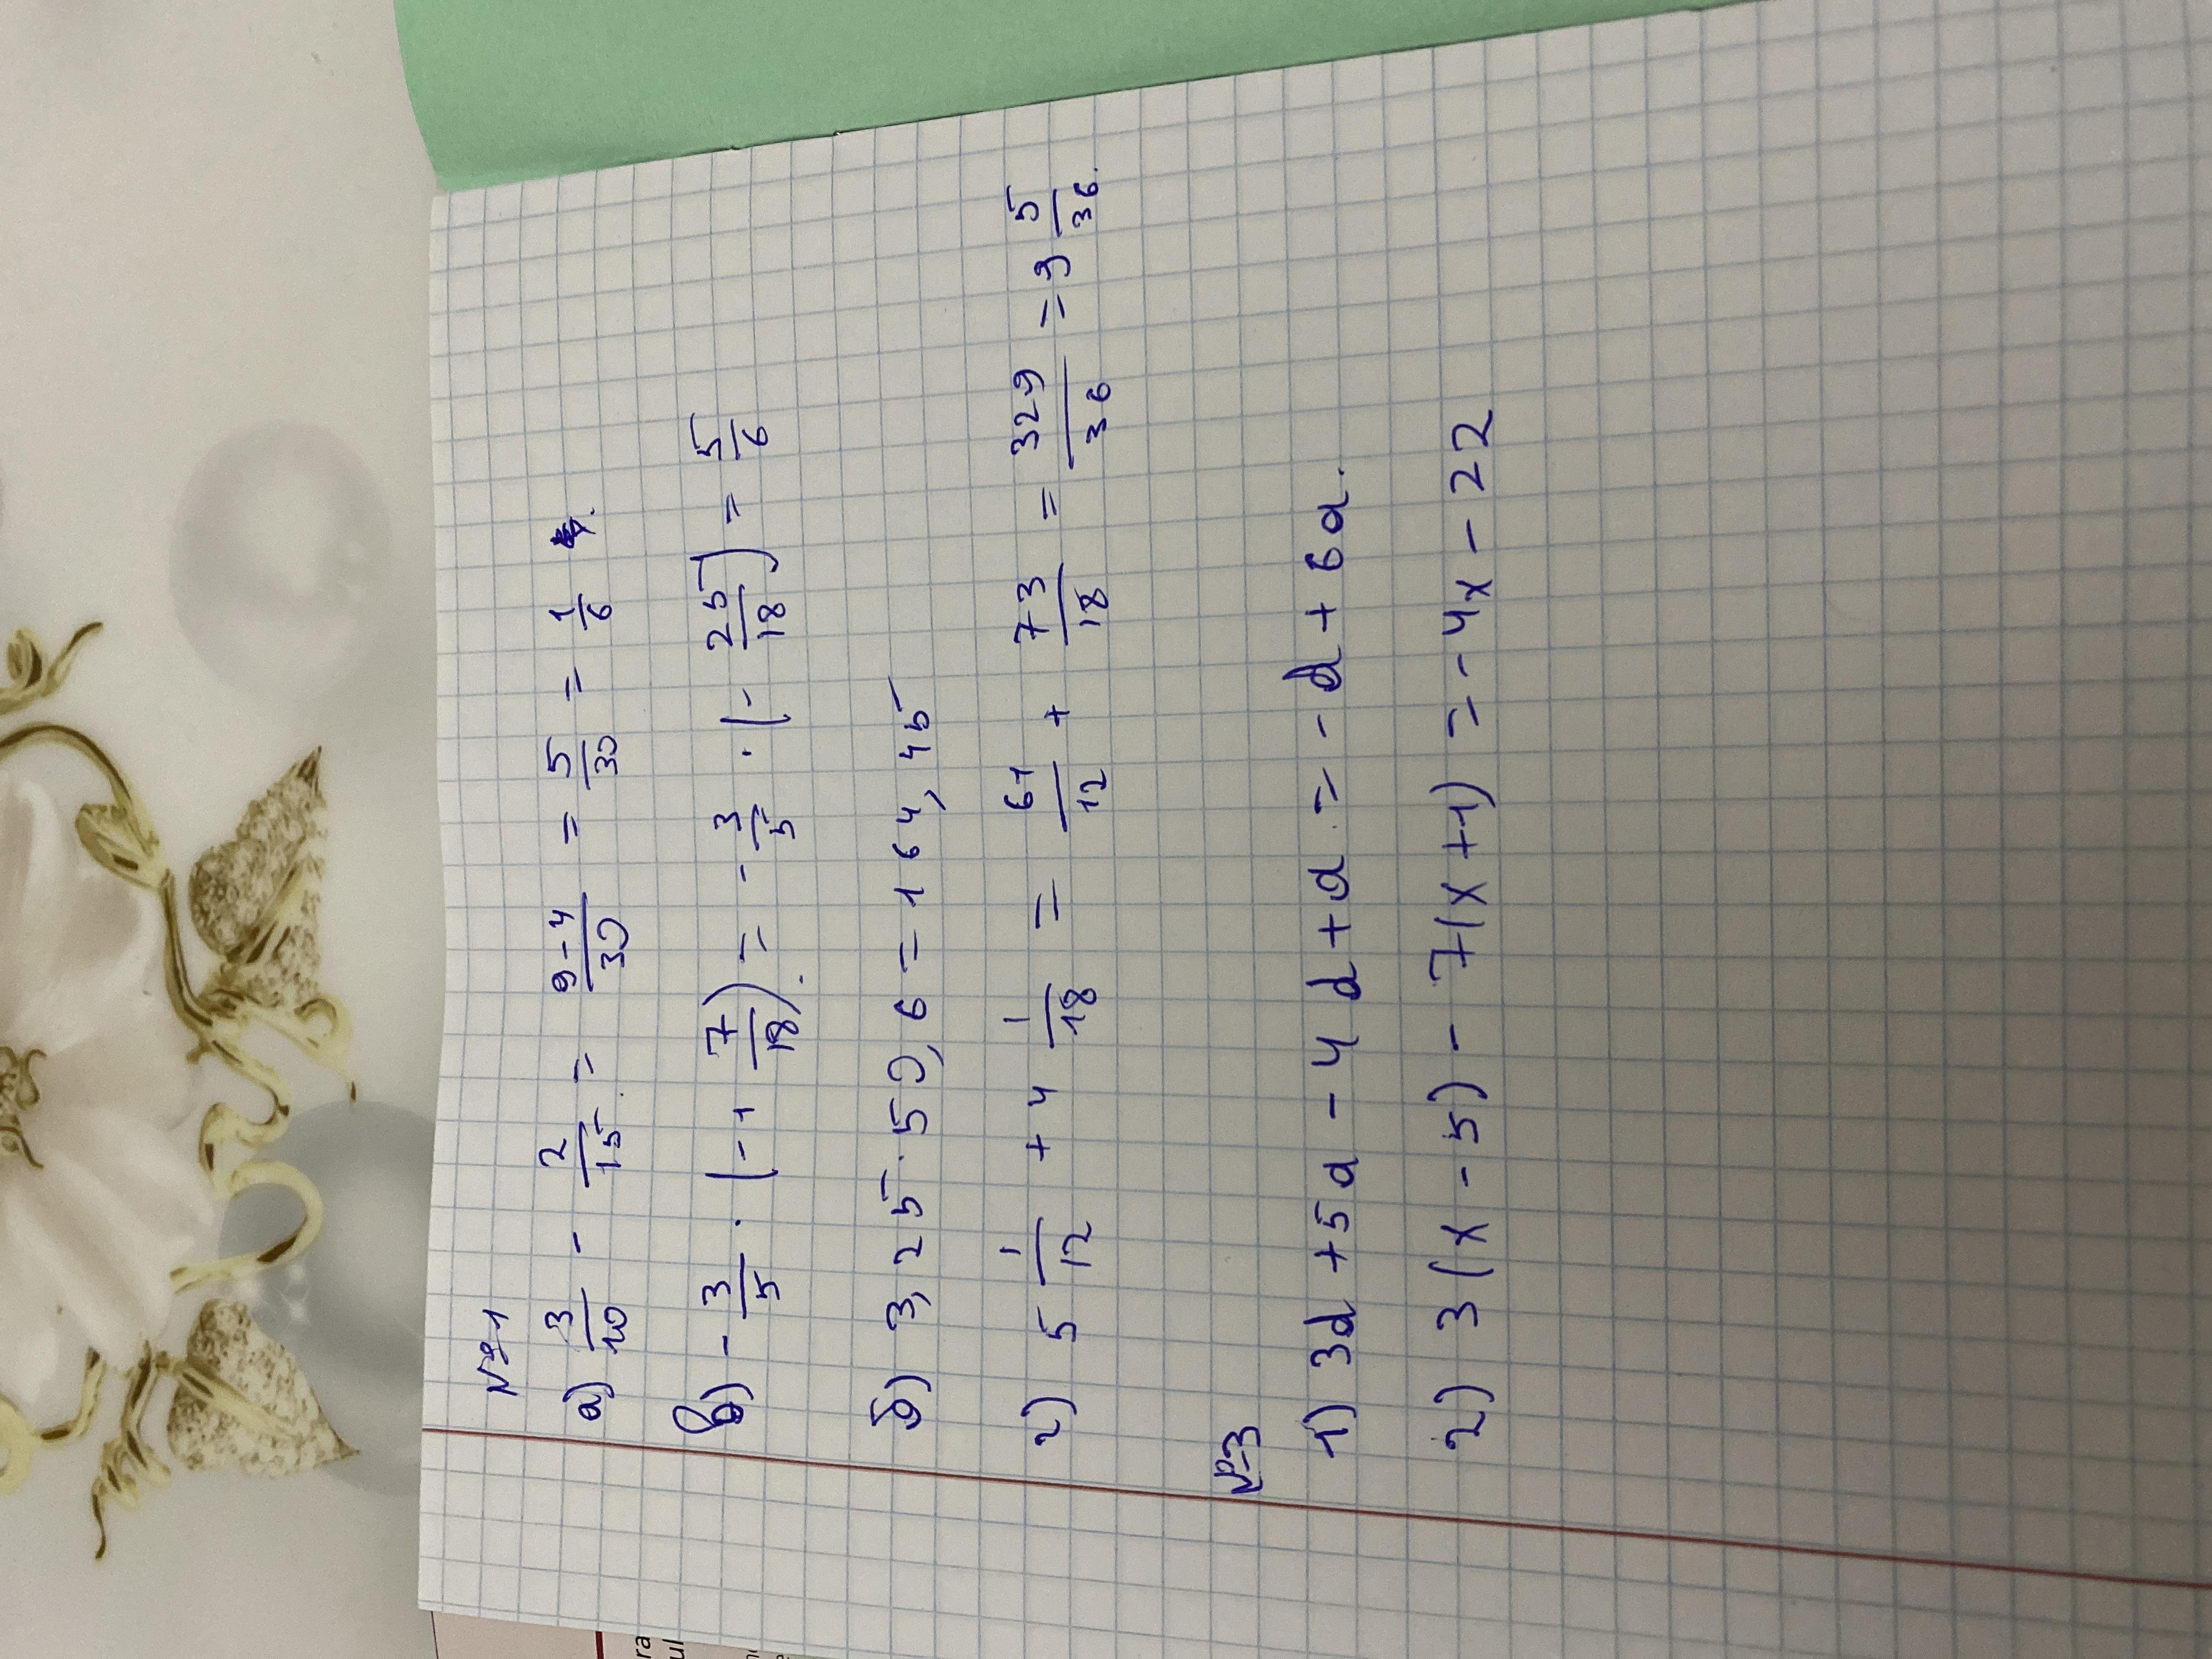 №1
а) 3/10 - 2/15 = 9-4/30 = 5/30 = 1/6
в) - 3/5 · (-1 7/18) = - 3/5 · (- 25/18) = 5/6
б) 3,25 · 50,6 = 164,45
г) 5 1/12 + 4 1/18 = 61/12 + 73/18 = 329/36 = 9 5/36.
№3
1) 3d + 5a - 4d + a = - d + 6a.
2) 3(x - 5) - 7(x + 1) = - 4x - 22